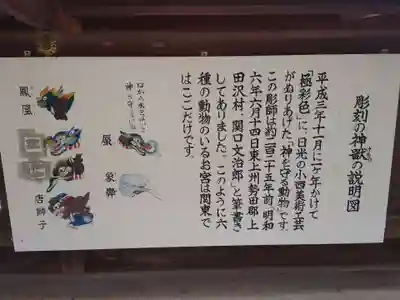 彫刻の神獣の説明図
平成三年十一月に一ヶ年かけて
「極彩色」に、日光の小西美術工芸
がぬりあげた「神を守る動物」です。
この彫師は約二百二十五年前「明和
六年六月十四日東上州勢田郡上
田沢村、関口文治郎」と筆書き
してありました。このように六
種の動物のいるお宮は関東で
はここだけです。
蜃
鳳凰
唐獅子